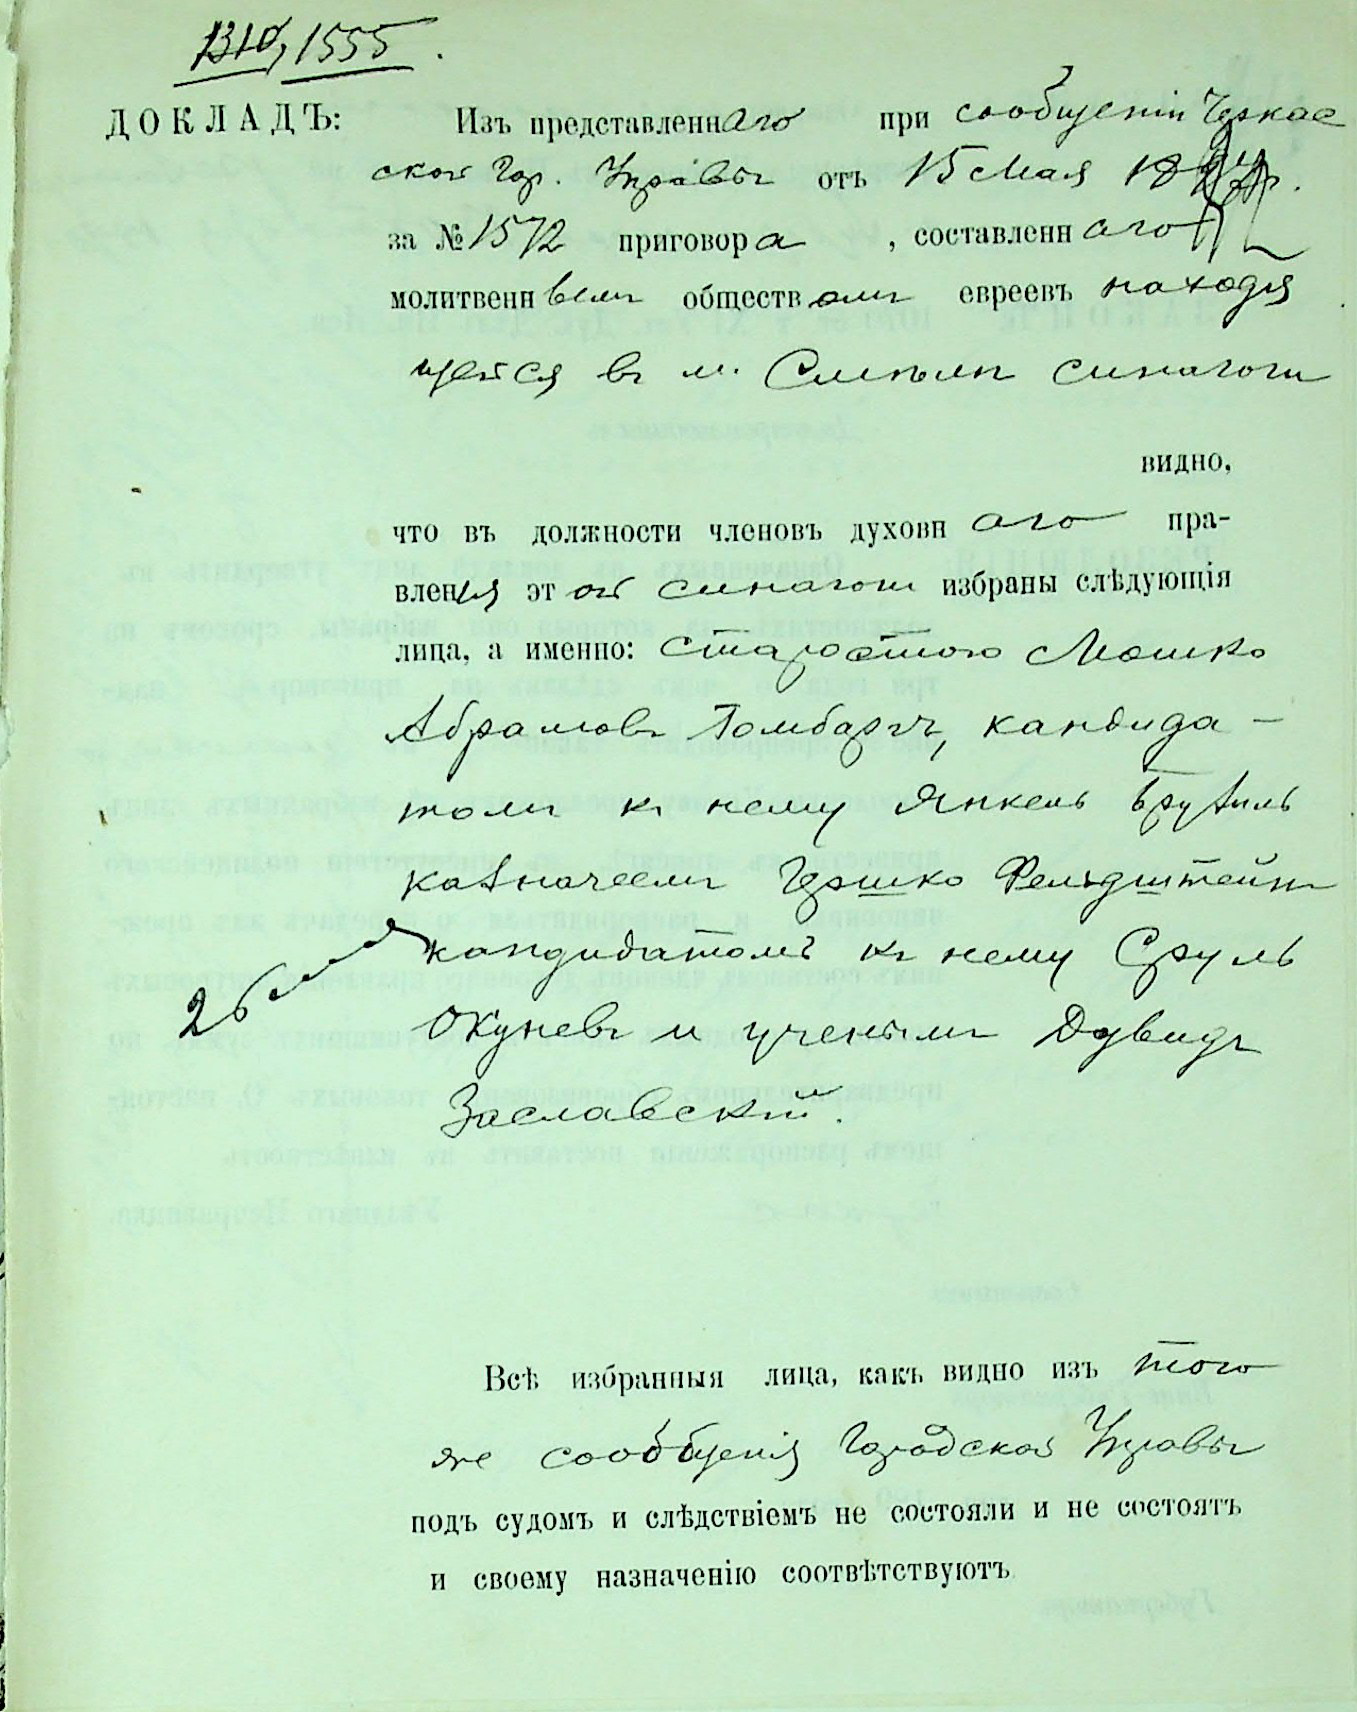 1310, 1555.
ДОКЛАДЪ: Изъ представленнаго при сообщеніи Черкас
ской Гор. Управы отъ 15 Мая 18
за № 1572 приговора, составленнаго
молитвеннымъ обществомъ евреевъ находя
щейся въ м. Смѣлѣ синагоги
видно,
что въ должности членовъ духовнаго пра-
вленія этой синагоги избраны слѣдующія
лица, а именно: старостою Мошко
Абрамовъ Гомбергъ, кандида-
томъ къ нему Янкель
казначеемъ Гершко Фельдштейнъ
кандидатомъ къ нему Сруль
26
Окуневъ и ученымъ Дувидъ
Заславскій.
Всѣ избранныя лица, какъ видно изъ того
же сообщенія Городской Управы
подъ судомъ и слѣдствіемъ не состояли и не состоятъ
и своему назначенію соотвѣтствуютъ